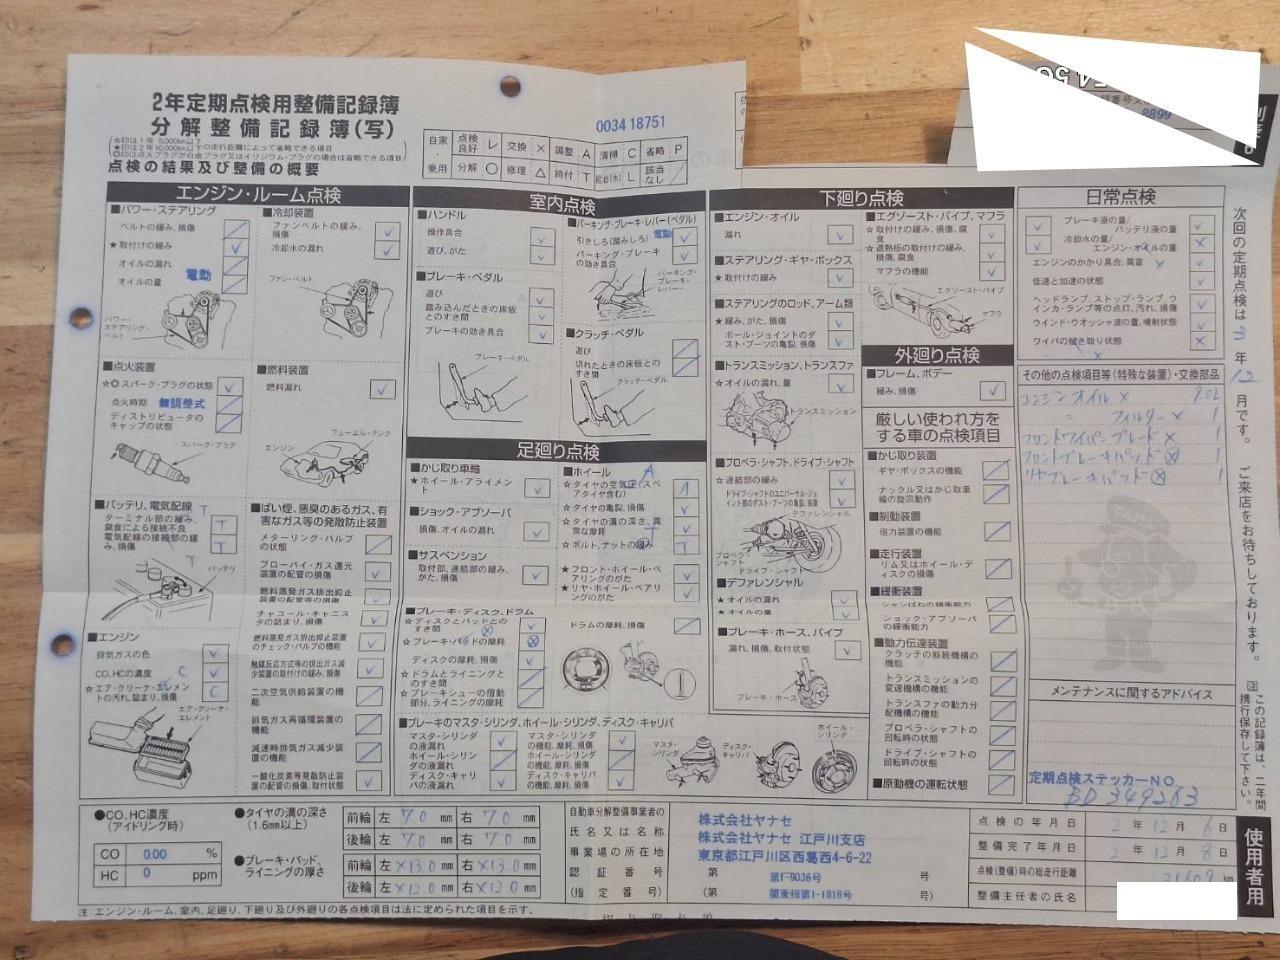 2年定期点検用整備記録簿
分解整備記録簿(写)
点検の結果及び整備の概要
003418751
自家・乗用
点検良好 レ 交換 × 調整 A 清掃 C 省略 P
分解 ○ 修理 △ 締付 T 給油(水) L 該当なし /
エンジン・ルーム点検
■パワー・ステアリング
ベルトの緩み、損傷
★取付けの緩み
オイルの漏れ
電動
オイルの量
パワー・ステアリング・ベルト
■冷却装置
ファンベルトの緩み、損傷
冷却水の漏れ
ファン・ベルト
■点火装置
☆◎スパーク・プラグの状態
点火時期 無調整式
ディストリビュータのキャップの状態
スパーク・プラグ
■燃料装置
燃料漏れ
フューエル・タンク
エンジン
■バッテリ、電気配線
ターミナル部の緩み、腐食による接続不良
電気配線の接続部の緩み、損傷
バッテリ
■ばい煙、悪臭のあるガス、有害なガス等の発散防止装置
メターリング・バルブの状態
ブローバイ・ガス還元装置の配管の損傷
燃料蒸発ガス排出抑止装置の配管等の損傷
チャコール・キャニスタの詰まり、損傷
燃料蒸発ガス排出抑止装置のチェック・バルブの機能
触媒反応方式等の排出ガス減少装置の取付けの緩み、損傷
二次空気供給装置の機能
排気ガス再循環装置の機能
減速時排気ガス減少装置の機能
一酸化炭素等発散防止装置の配管の損傷、取付状態
■エンジン
排気ガスの色
CO、HCの濃度 C
☆エア・クリーナ・エレメントの汚れ、詰まり、損傷
エア・クリーナ・エレメント
室内点検
■ハンドル
操作具合
遊び、がた
■ブレーキ・ペダル
遊び
踏み込んだときの床板とのすき間
ブレーキの効き具合
ブレーキ・ペダル
■パーキング・ブレーキ・レバー(ペダル)
電動
引きしろ(踏みしろ)
パーキング・ブレーキの効き具合
パーキング・ブレーキ・レバー
■クラッチ・ペダル
遊び
切れたときの床板とのすき間
クラッチ・ペダル
足廻り点検
■かじ取り車輪
★ホイール・アライメント
■ショック・アブソーバ
損傷、オイルの漏れ
■サスペンション
取付部、連結部の緩み、がた、損傷
■ホイール
☆タイヤの空気圧(スペアタイヤ含む)
☆タイヤの亀裂、損傷
☆タイヤの溝の深さ、異常な摩耗
☆ボルト、ナットの緩み
★フロント・ホイール・ベアリングのがた
★リヤ・ホイール・ベアリングのがた
■ブレーキ・ディスク、ドラム
☆ディスクとパッドとのすき間
☆ブレーキ・パッドの摩耗
ディスクの摩耗、損傷
☆ドラムとライニングとのすき間
☆ブレーキシューの摺動部分、ライニングの摩耗
ドラムの摩耗、損傷
■ブレーキのマスタ・シリンダ、ホイール・シリンダ、ディスク・キャリパ
マスタ・シリンダの液漏れ
ホイール・シリンダの液漏れ
ディスク・キャリパの液漏れ
マスタ・シリンダの機能、摩耗、損傷
ホイール・シリンダの機能、摩耗、損傷
ディスク・キャリパの機能、摩耗、損傷
マスタ・シリンダ
ディスク・キャリパ
ホイール・シリンダ
下廻り点検
■エンジン・オイル
漏れ
■ステアリング・ギヤ・ボックス
★取付けの緩み
■ステアリングのロッド、アーム類
★緩み、がた、損傷
ボール・ジョイントのダスト・ブーツの亀裂、損傷
■トランスミッション、トランスファ
☆オイルの漏れ、量
トランスミッション
■プロペラ・シャフト、ドライブ・シャフト
☆連結部の緩み
ドライブ・シャフトのユニバーサル・ジョイント部のダスト・ブーツの亀裂、損傷
デファレンシャル
プロペラ・シャフト
ドライブ・シャフト
■デファレンシャル
★オイルの漏れ
★オイルの量
■ブレーキ・ホース、パイプ
漏れ、損傷、取付状態
ブレーキ・ホース
■エグゾースト・パイプ、マフラ
☆取付けの緩み、損傷、腐食
☆遮熱板の取付けの緩み、損傷、腐食
マフラの機能
エグゾースト・パイプ
マフラ
外廻り点検
■フレーム、ボデー
緩み、損傷
厳しい使われ方をする車の点検項目
■かじ取り装置
ギヤ・ボックスの機能
ナックル又はかじ取車輪の旋回動作
■制動装置
倍力装置の機能
■走行装置
リム又はホイール・ディスクの損傷
■緩衝装置
シャシばねの緩衝能力
ショック・アブソーバの緩衝能力
■動力伝達装置
クラッチの断続機構の機能
トランスミッションの変速機構の機能
トランスファの動力分配機構の機能
プロペラ・シャフトの回転時の状態
ドライブ・シャフトの回転時の状態
■原動機の運転状態
日常点検
ブレーキ液の量/バッテリ液の量
冷却水の量/エンジン・オイルの量
エンジンのかかり具合、異音
低速と加速の状態
ヘッドランプ、ストップ・ランプ、ウインカ・ランプ等の点灯、汚れ、損傷
ウインド・ウオッシャ液の量、噴射状態
ワイパの拭き取り状態
その他の点検項目等(特殊な装置)・交換部品
エンジンオイル ×
〃 フィルター × 1
フロントワイパーブレード × 1
フロントブレーキパッド ⊗ 1
リヤブレーキパッド ⊗ 1
メンテナンスに関するアドバイス
定期点検ステッカーNO.
BD349263
次回の定期点検は3年12月です。ご来店をお待ちしております。
注 この記録簿は、二年間携行保存して下さい。
使用者用
●CO、HC濃度(アイドリング時)
CO 0.00 %
HC 0 ppm
●タイヤの溝の深さ(1.6mm以上)
前輪 左 7.0 mm 右 7.0 mm
後輪 左 7.0 mm 右 7.0 mm
●ブレーキ・パッド、ライニングの厚さ
前輪 左 ×13.0 mm 右 ×13.0 mm
後輪 左 ×12.0 mm 右 ×12.0 mm
自動車分解整備事業者の氏名又は名称
事業場の所在地
認証番号
(指定番号)
株式会社ヤナセ
株式会社ヤナセ 江戸川支店
東京都江戸川区西葛西4-6-22
第 第1-9036号 号
(第 関東指第1-1818号 号)
点検の年月日 2年12月6日
整備完了年月日 2年12月8日
点検(整備)時の総走行距離 km
整備主任者の氏名
注:エンジン・ルーム、室内、足廻り、下廻り及び外廻りの各点検項目は法に定められた項目を示す。
8899